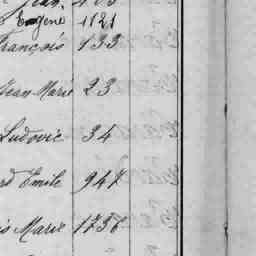 Jean
Eugène 1121
François 133
Jean Marie 23
Ludovic 34
Emile 947
Marie 1736